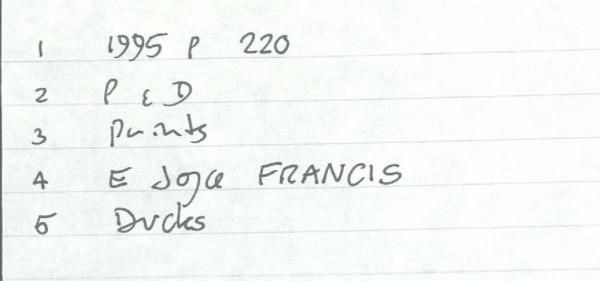 1 1995 P 220
2 P & D
3 Prints
4 E Joyce FRANCIS
5 Ducks